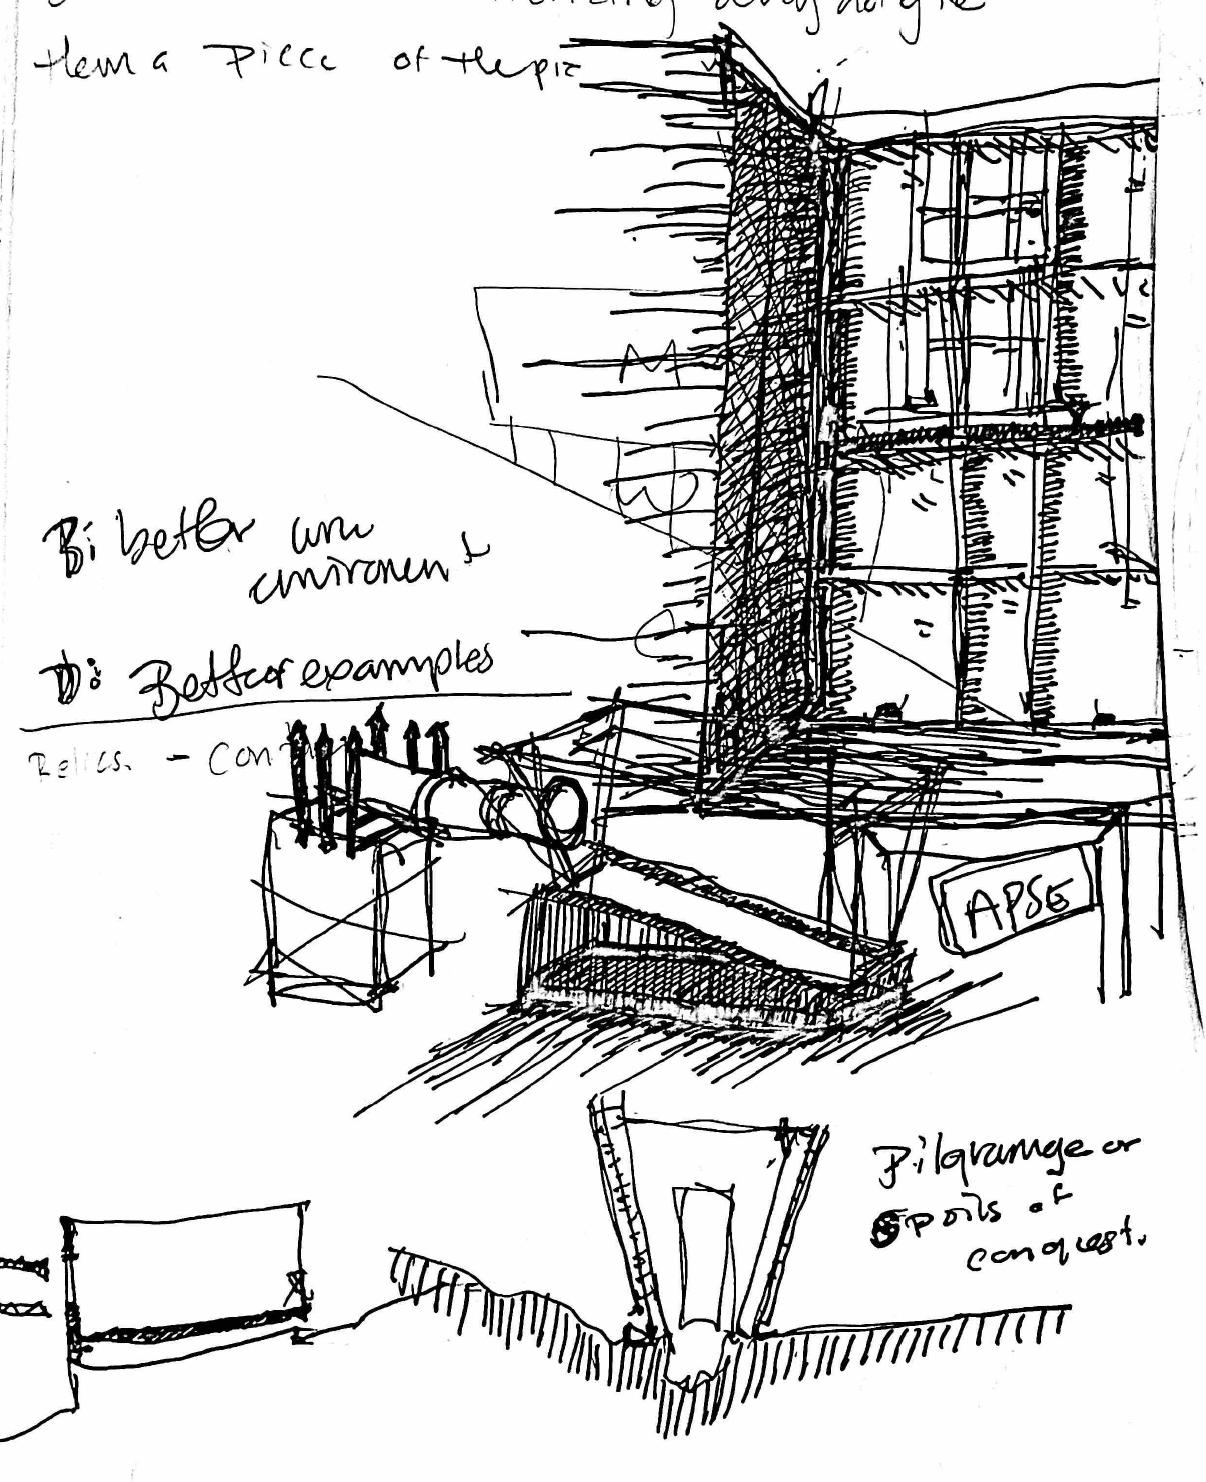 them a piece of the pie
M
B: better
environment
D: Better examples
Relics. - Con
APSE
Pilgramge or
Spoils of
conquest.